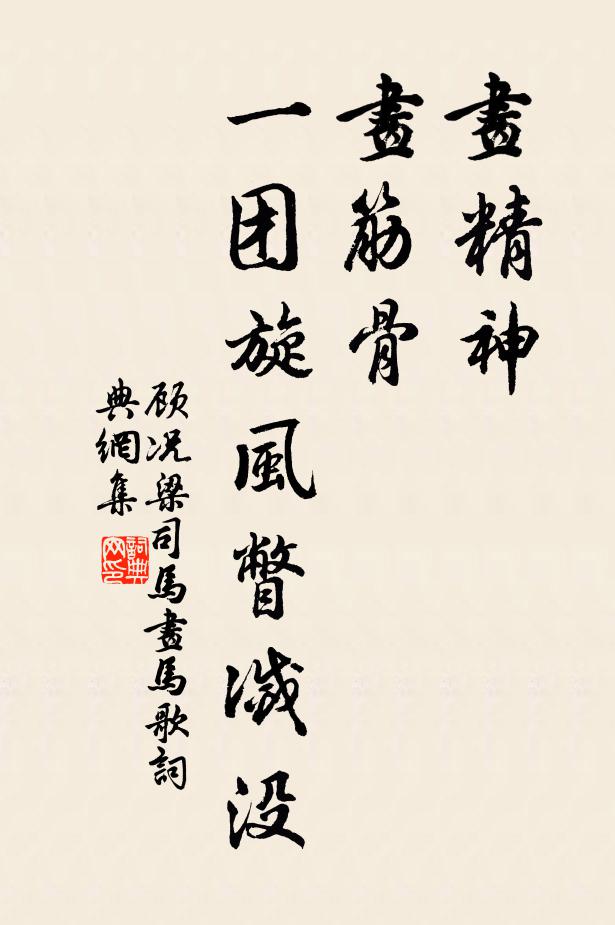 畫精神
畫筋骨
一团旋風瞥滅没
顾况梁司馬畫馬歌詞
典網集
詞典
网印